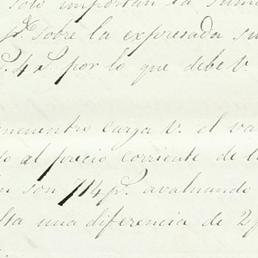 solo importan la suma
Sobre la expresada su
4 r. por lo que debe V.
encuentro carga V. el va
al precio corriente de l
son 714 p.s avaluando
lta una diferencia de 2